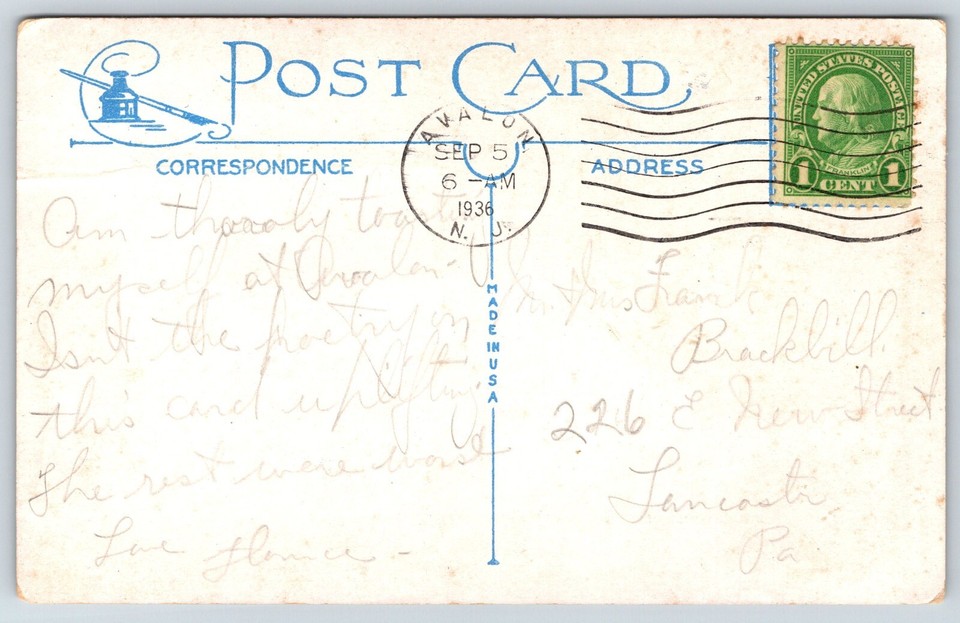 POST CARD
CORRESPONDENCE
ADDRESS
AVALON
SEP 5
6 - AM
1936
N. J.
UNITED STATES POSTAGE
FRANKLIN
1 CENT 1
MADE IN USA
Am
myself at Avalon -
Isn't the poetry on
this card uplifting
The rest were worse
Love
Mr + Mrs Frank
Brackbill
226 E New Street
Lancaster
Pa